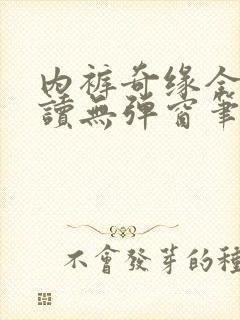 内裤奇缘全
讀無彈窗筆
不會發芽的種